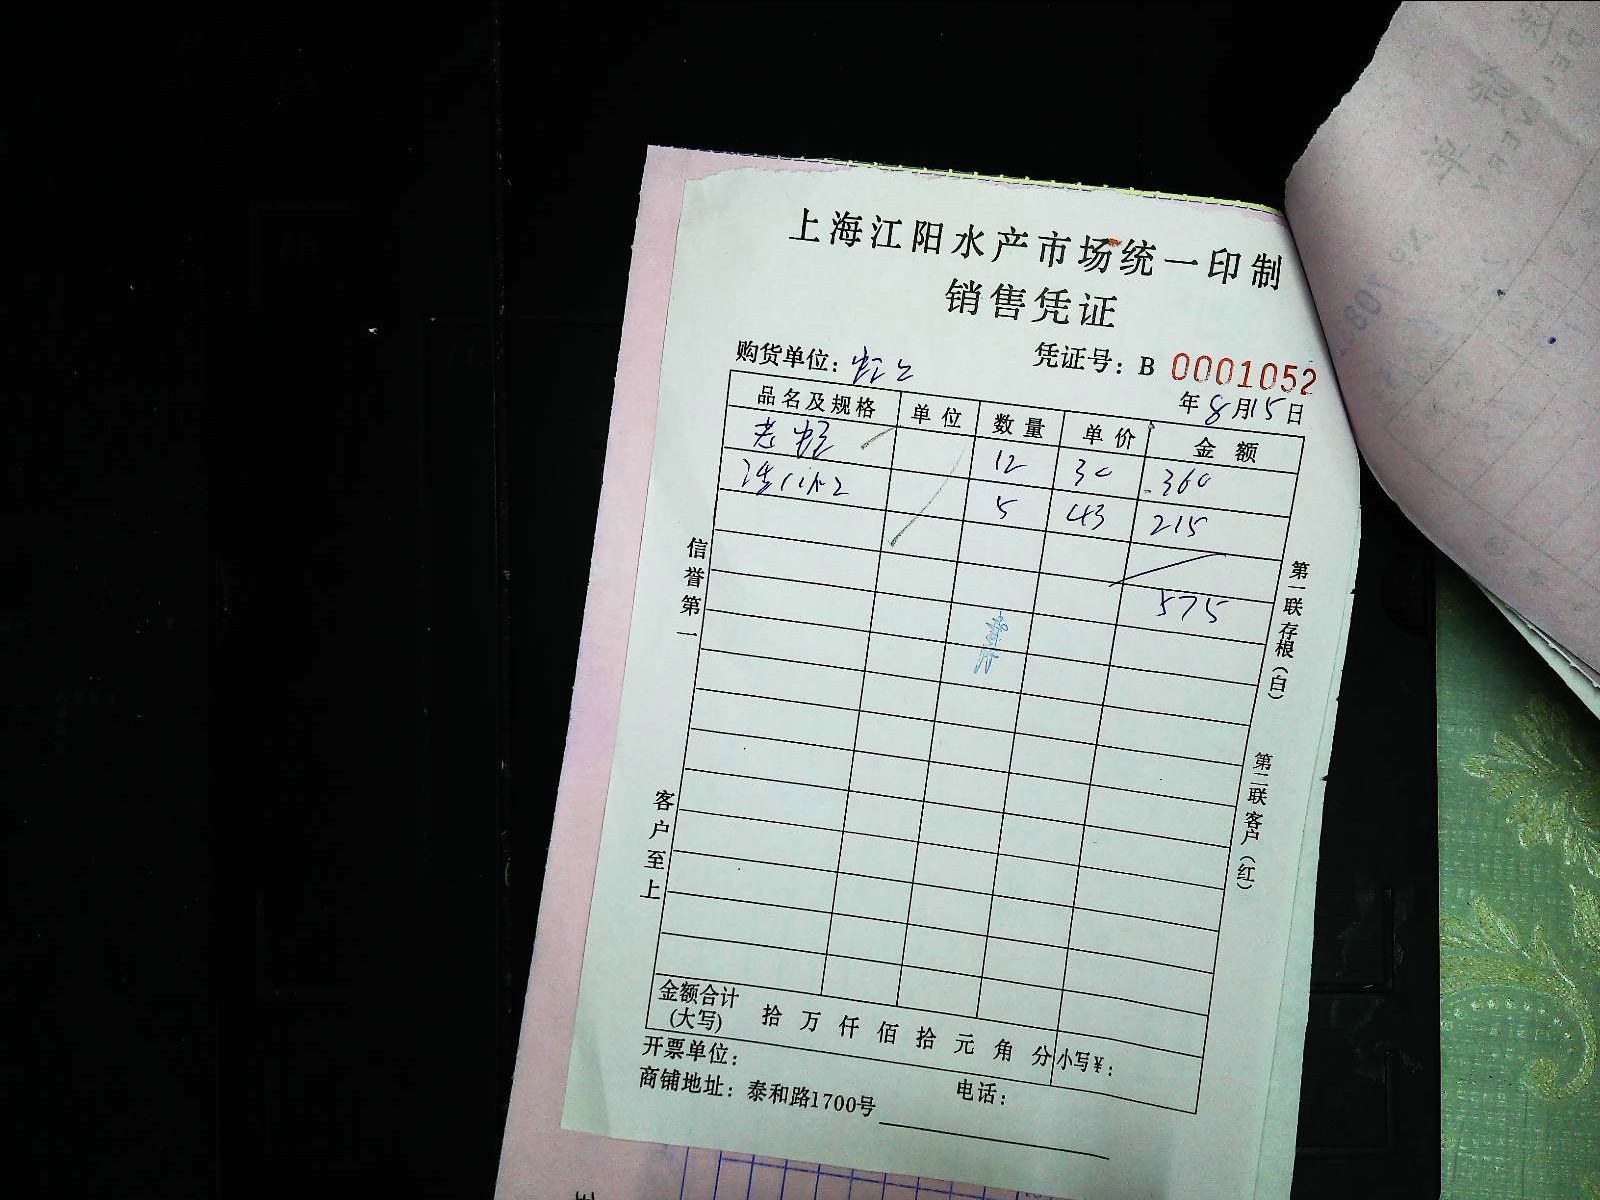 上海江阳水产市场统一印制
销售凭证
购货单位：
凭证号：B 0001052
年8月15日
品名及规格 单位 数量 单价 金额
老 12 30 360
5 43 215
575
信誉第一
客户至上
第一联存根（白）
第二联客户（红）
金额合计
(大写) 拾 万 仟 佰 拾 元 角 分 小写¥：
开票单位：
电话：
商铺地址：泰和路1700号